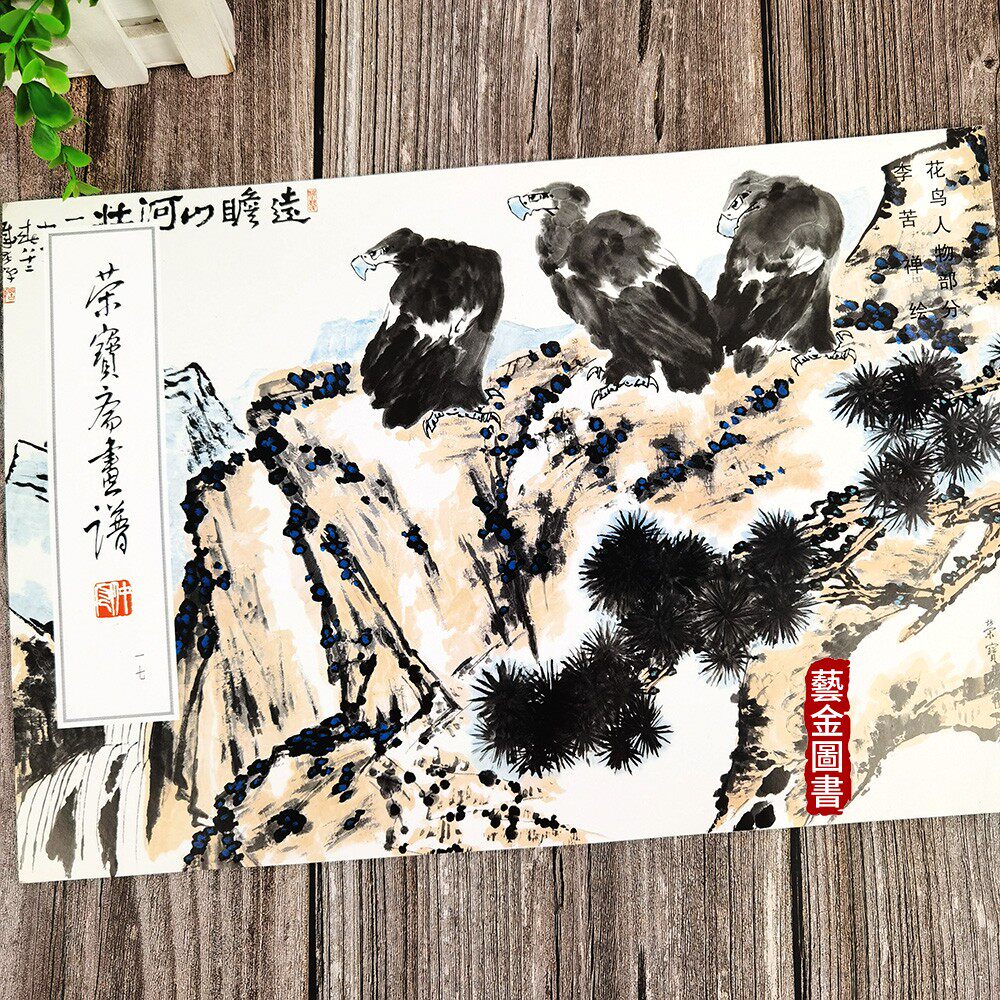 遠瞻山河壮
花鸟人物部分
李苦禅绘
荣寶斋畫谱
一七
藝金圖書